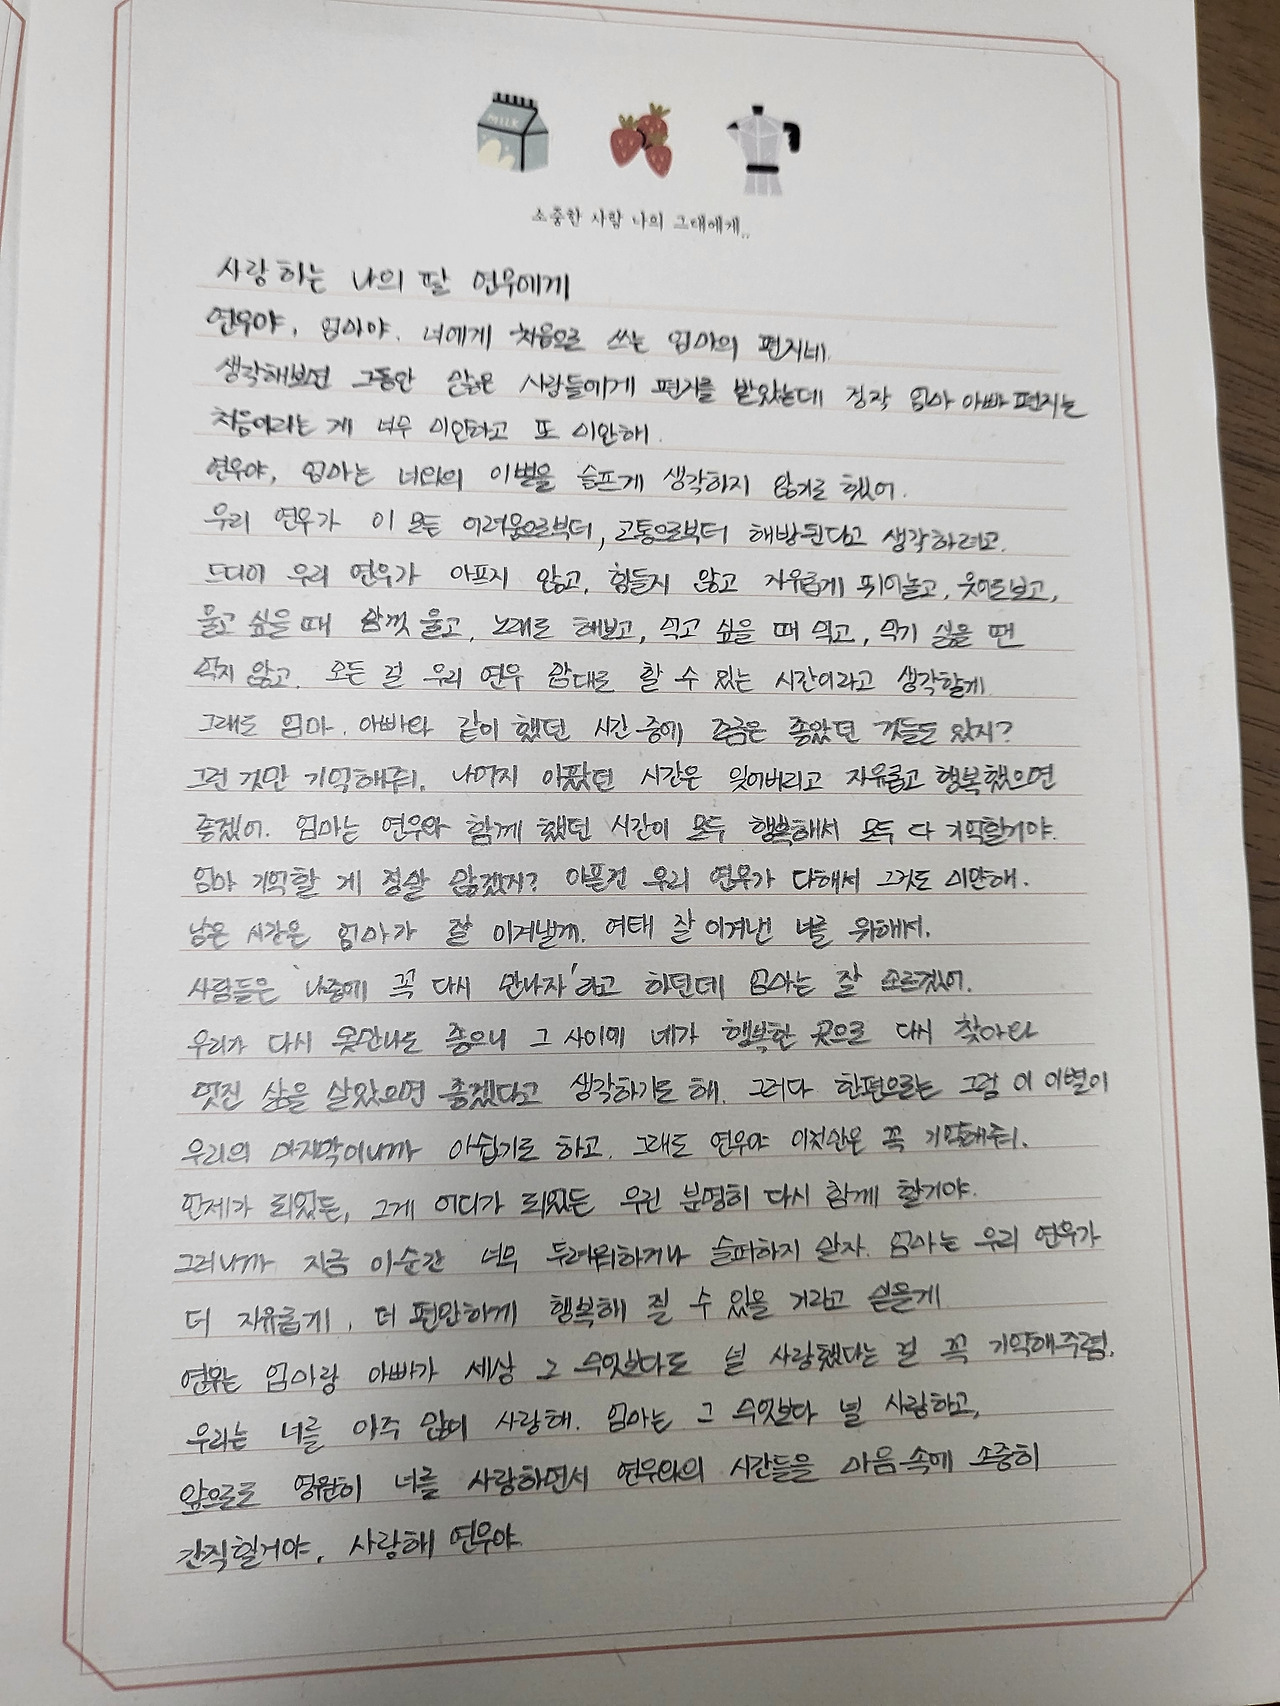 MILK
소중한 사람 나의 그대에게..
사랑하는 나의 딸 연우에게
연우야, 엄마야. 너에게 처음으로 쓰는 엄마의 편지네.
생각해보면 그동안 많은 사람들에게 편지를 받았는데 정작 엄마 아빠 편지는
처음이라는 게 너무 미안하고 또 미안해.
연우야, 엄마는 너와의 이별을 슬프게 생각하지 않기로 했어.
우리 연우가 이 모든 어려움으로부터, 고통으로부터 해방된다고 생각하려고.
드디어 우리 연우가 아프지 않고, 힘들지 않고 자유롭게 뛰어놀고, 웃어도보고,
울고 싶을 때 맘껏 울고, 노래도 해보고, 먹고 싶을 때 먹고, 먹기 싫을 땐
먹지 않고. 모든 걸 우리 연우 맘대로 할 수 있는 시간이라고 생각할게
그래도 엄마. 아빠와 같이 했던 시간 중에 조금은 좋았던 것들도 있지?
그런 것만 기억해줘. 나머지 아팠던 시간은 잊어버리고 자유롭고 행복했으면
좋겠어. 엄마는 연우와 함께 했던 시간이 모두 행복해서 모두 다 기억할거야.
엄마 기억할 게 정말 많겠지? 아픈건 우리 연우가 다해서 그것도 미안해.
남은 시간은 엄마가 잘 이겨낼게. 여태 잘 이겨낸 너를 위해서.
사람들은 '나중에 꼭 다시 만나자'라고 하던데 엄마는 잘 모르겠어.
우리가 다시 못만나도 좋으니 그 사이에 네가 행복한 곳으로 다시 찾아와
멋진 삶을 살았으면 좋겠다고 생각하기도 해. 그러다 한편으로는 그럼 이 이별이
우리의 마지막이니까 아쉽기도 하고. 그래도 연우야 이것만은 꼭 기억해줘.
언제가 되었든, 그게 어디가 되었든 우린 분명히 다시 함께 할거야.
그러니까 지금 이순간 너무 두려워하거나 슬퍼하지 말자. 엄마는 우리 연우가
더 자유롭게, 더 편안하게 행복해 질 수 있을 거라고 믿을게
연우는 엄마랑 아빠가 세상 그 무엇보다도 널 사랑했다는 걸 꼭 기억해주렴.
우리는 너를 아주 많이 사랑해. 엄마는 그 무엇보다 널 사랑하고,
앞으로도 영원히 너를 사랑하면서 연우와의 시간들을 마음 속에 소중히
간직할거야. 사랑해 연우야.